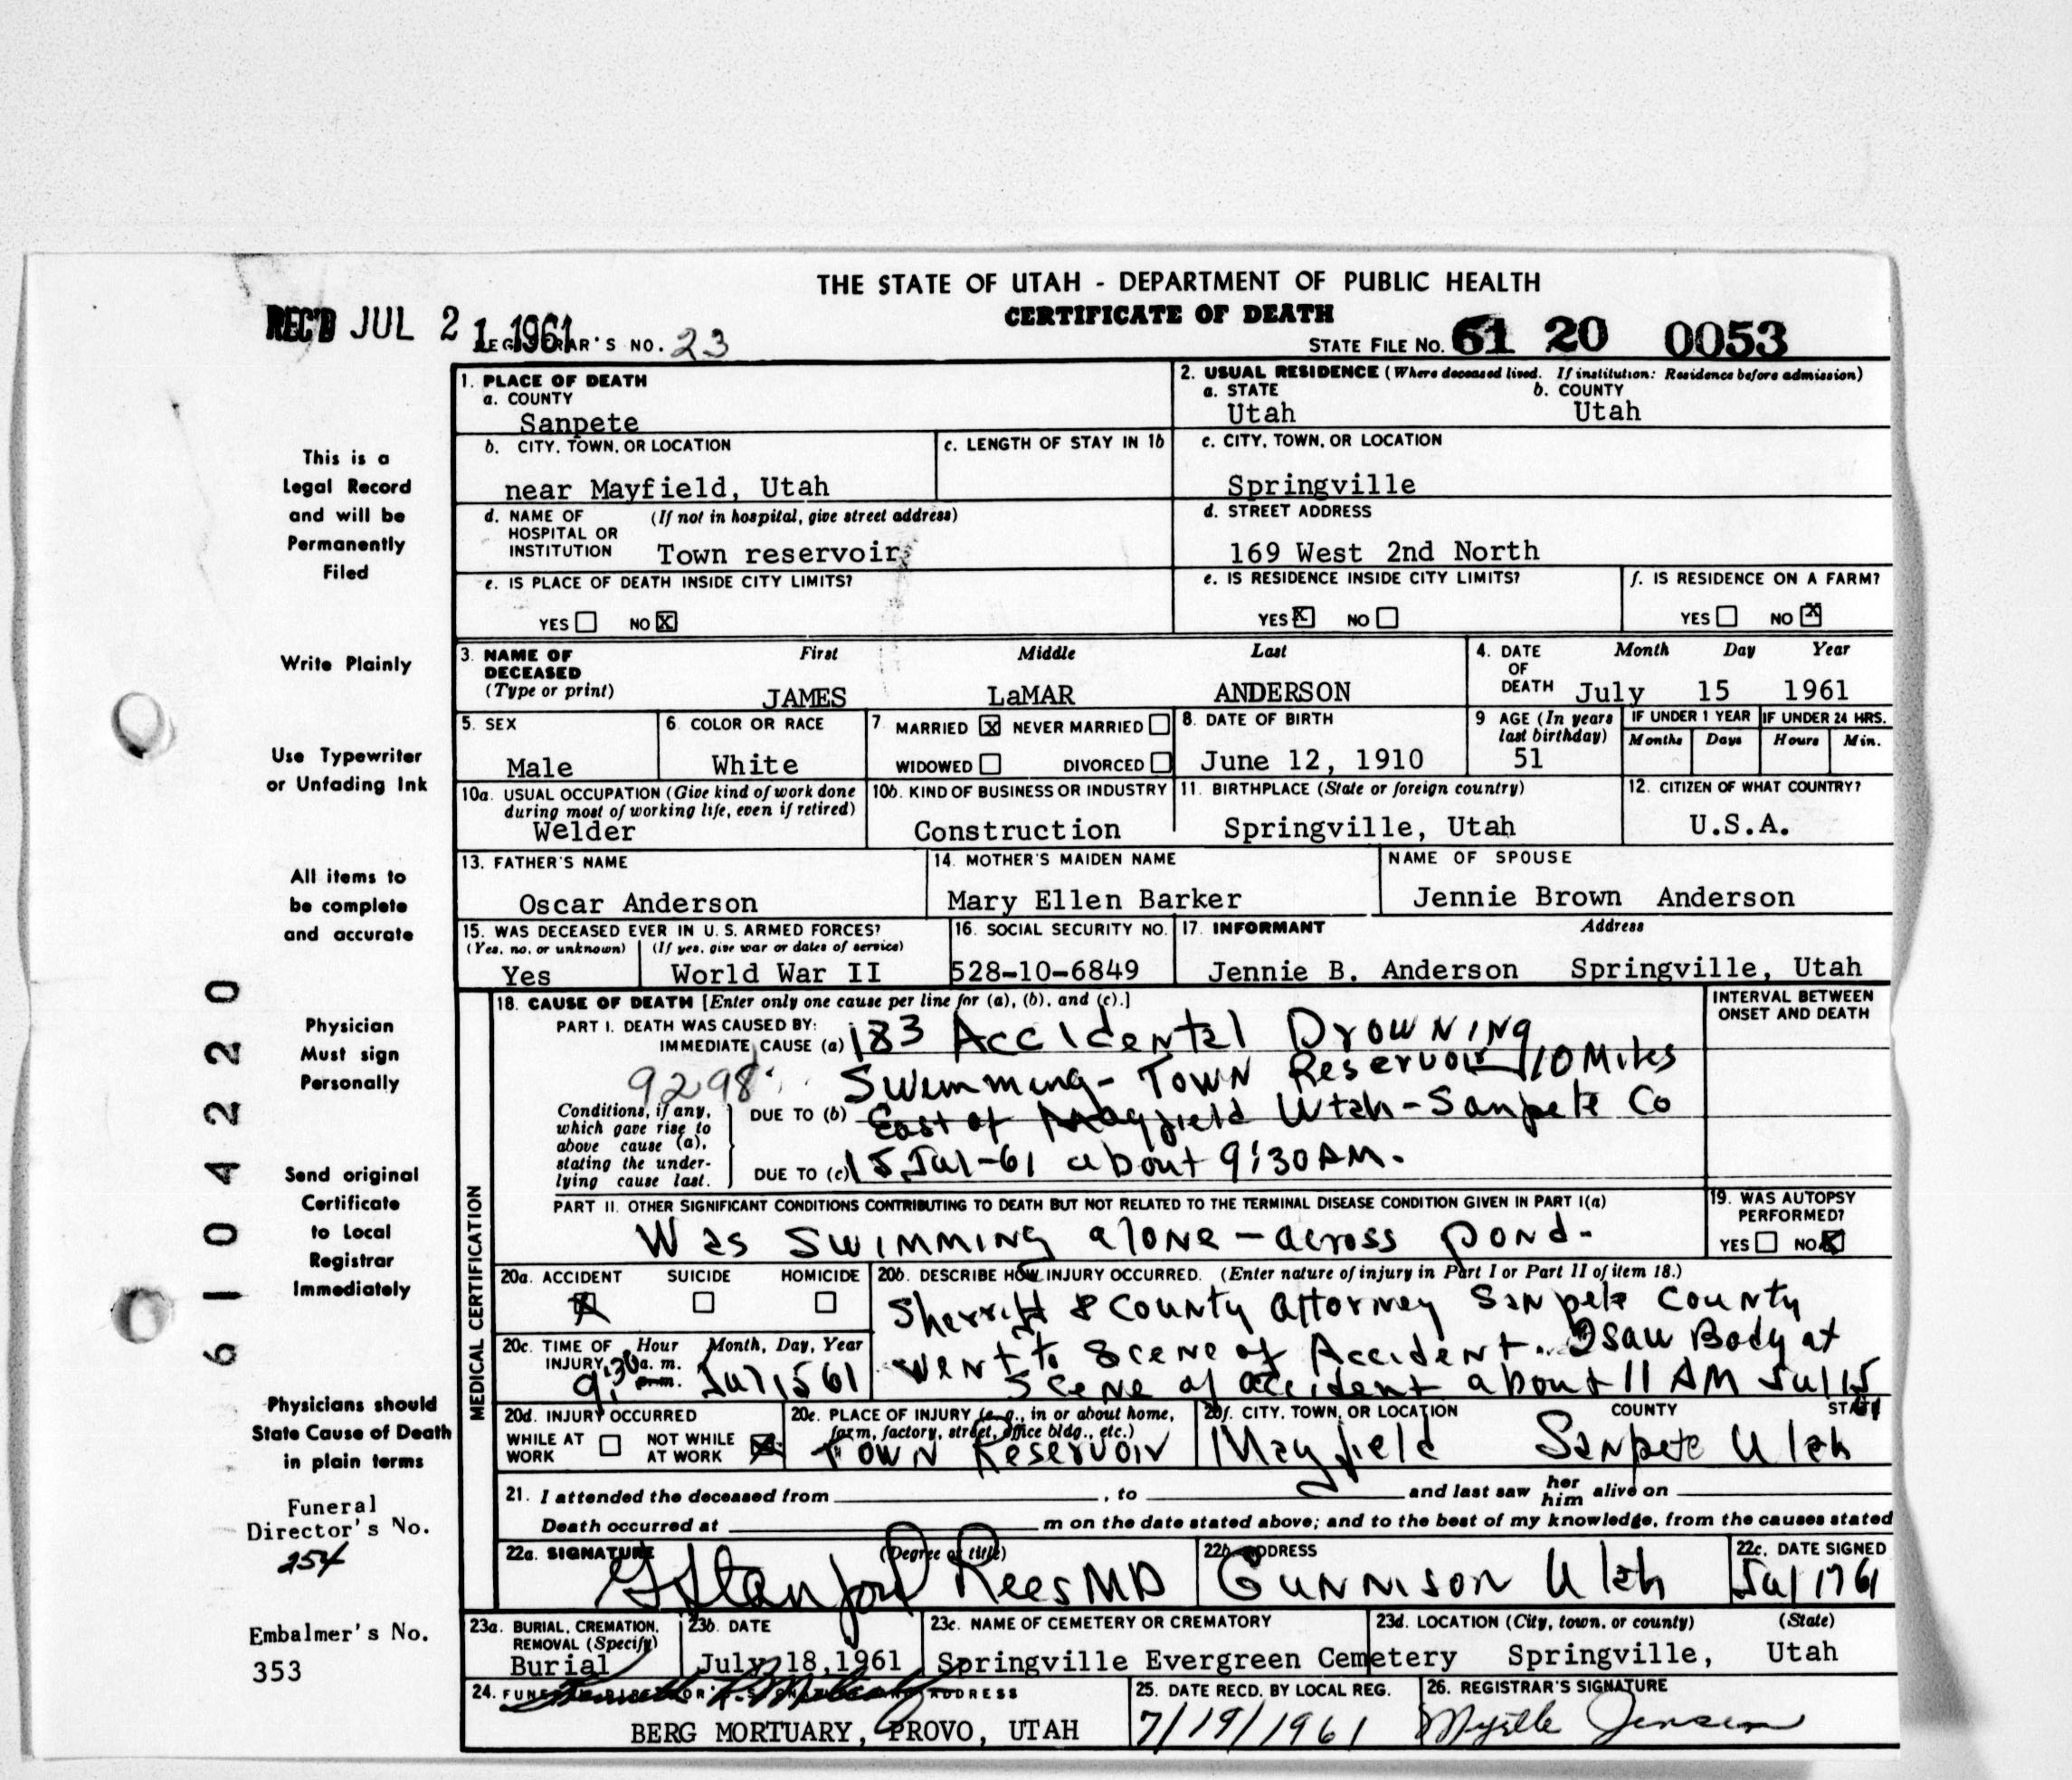 THE STATE OF UTAH - DEPARTMENT OF PUBLIC HEALTH
CERTIFICATE OF DEATH
REC'D JUL 21 1961
REGISTRAR'S NO. 23
STATE FILE NO. 61 20 0053
This is a
Legal Record
and will be
Permanently
Filed
Write Plainly
Use Typewriter
or Unfading Ink
All items to
be complete
and accurate
Physician
Must sign
Personally
Send original
Certificate
to Local
Registrar
Immediately
Physicians should
State Cause of Death
in plain terms
Funeral
Director's No.
254
Embalmer's No.
353
61042220
1. PLACE OF DEATH
a. COUNTY
Sanpete
b. CITY, TOWN, OR LOCATION
near Mayfield, Utah
c. LENGTH OF STAY IN 1b
d. NAME OF (If not in hospital, give street address)
HOSPITAL OR
INSTITUTION Town reservoir
e. IS PLACE OF DEATH INSIDE CITY LIMITS?
YES NO X
2. USUAL RESIDENCE (Where deceased lived. If institution: Residence before admission)
a. STATE b. COUNTY
Utah Utah
c. CITY, TOWN, OR LOCATION
Springville
d. STREET ADDRESS
169 West 2nd North
e. IS RESIDENCE INSIDE CITY LIMITS?
YES X NO
f. IS RESIDENCE ON A FARM?
YES NO X
3. NAME OF First Middle Last
DECEASED
(Type or print) JAMES LaMAR ANDERSON
4. DATE Month Day Year
OF
DEATH July 15 1961
5. SEX
Male
6. COLOR OR RACE
White
7. MARRIED X NEVER MARRIED
WIDOWED DIVORCED
8. DATE OF BIRTH
June 12, 1910
9 AGE (In years
last birthday)
51
IF UNDER 1 YEAR IF UNDER 24 HRS.
Months Days Hours Min.
10a. USUAL OCCUPATION (Give kind of work done
during most of working life, even if retired)
Welder
10b. KIND OF BUSINESS OR INDUSTRY
Construction
11. BIRTHPLACE (State or foreign country)
Springville, Utah
12. CITIZEN OF WHAT COUNTRY?
U.S.A.
13. FATHER'S NAME
Oscar Anderson
14. MOTHER'S MAIDEN NAME
Mary Ellen Barker
NAME OF SPOUSE
Jennie Brown Anderson
15. WAS DECEASED EVER IN U.S. ARMED FORCES?
(Yes, no, or unknown) (If yes, give war or dates of service)
Yes World War II
16. SOCIAL SECURITY NO.
528-10-6849
17. INFORMANT Address
Jennie B. Anderson Springville, Utah
MEDICAL CERTIFICATION
18. CAUSE OF DEATH [Enter only one cause per line for (a), (b), and (c).]
INTERVAL BETWEEN
ONSET AND DEATH
PART I. DEATH WAS CAUSED BY:
IMMEDIATE CAUSE (a) 183 Accidental Drowning
9298 Swimming - Town Reservoir 10 Miles
Conditions, if any,
which gave rise to
above cause (a),
stating the under-
lying cause last.
DUE TO (b) East of Mayfield Utah - Sanpete Co
DUE TO (c) 15 Jul-61 about 9:30 AM.
PART II. OTHER SIGNIFICANT CONDITIONS CONTRIBUTING TO DEATH BUT NOT RELATED TO THE TERMINAL DISEASE CONDITION GIVEN IN PART I(a)
Was swimming alone - across pond.
19. WAS AUTOPSY
PERFORMED?
YES NO X
20a. ACCIDENT SUICIDE HOMICIDE
X
20b. DESCRIBE HOW INJURY OCCURRED. (Enter nature of injury in Part I or Part II of item 18.)
Sherriff & County Attorney Sanpete County
went to Scene of Accident. I saw Body at
Scene of accident about 11 AM Jul 15
61
20c. TIME OF Hour Month, Day, Year
INJURY 9:30 a. m. Jul 15 61
p.m.
20d. INJURY OCCURRED
WHILE AT NOT WHILE X
WORK AT WORK
20e. PLACE OF INJURY (e. g., in or about home,
farm, factory, street, office bldg., etc.)
Town Reservoir
20f. CITY, TOWN, OR LOCATION COUNTY STATE
Mayfield Sanpete Utah
21. I attended the deceased from , to and last saw her him alive on
Death occurred at m on the date stated above; and to the best of my knowledge, from the causes stated
22a. SIGNATURE (Degree or title)
G Stanford Rees MD
22b. ADDRESS
Gunnison Utah
22c. DATE SIGNED
Jul 17 61
23a. BURIAL, CREMATION,
REMOVAL (Specify)
Burial
23b. DATE
July 18, 1961
23c. NAME OF CEMETERY OR CREMATORY
Springville Evergreen Cemetery
23d. LOCATION (City, town, or county) (State)
Springville, Utah
24. FUNERAL DIRECTOR'S SIGNATURE AND ADDRESS
BERG MORTUARY, PROVO, UTAH
25. DATE RECD. BY LOCAL REG.
7/19/1961
26. REGISTRAR'S SIGNATURE
Myrtle Jensen